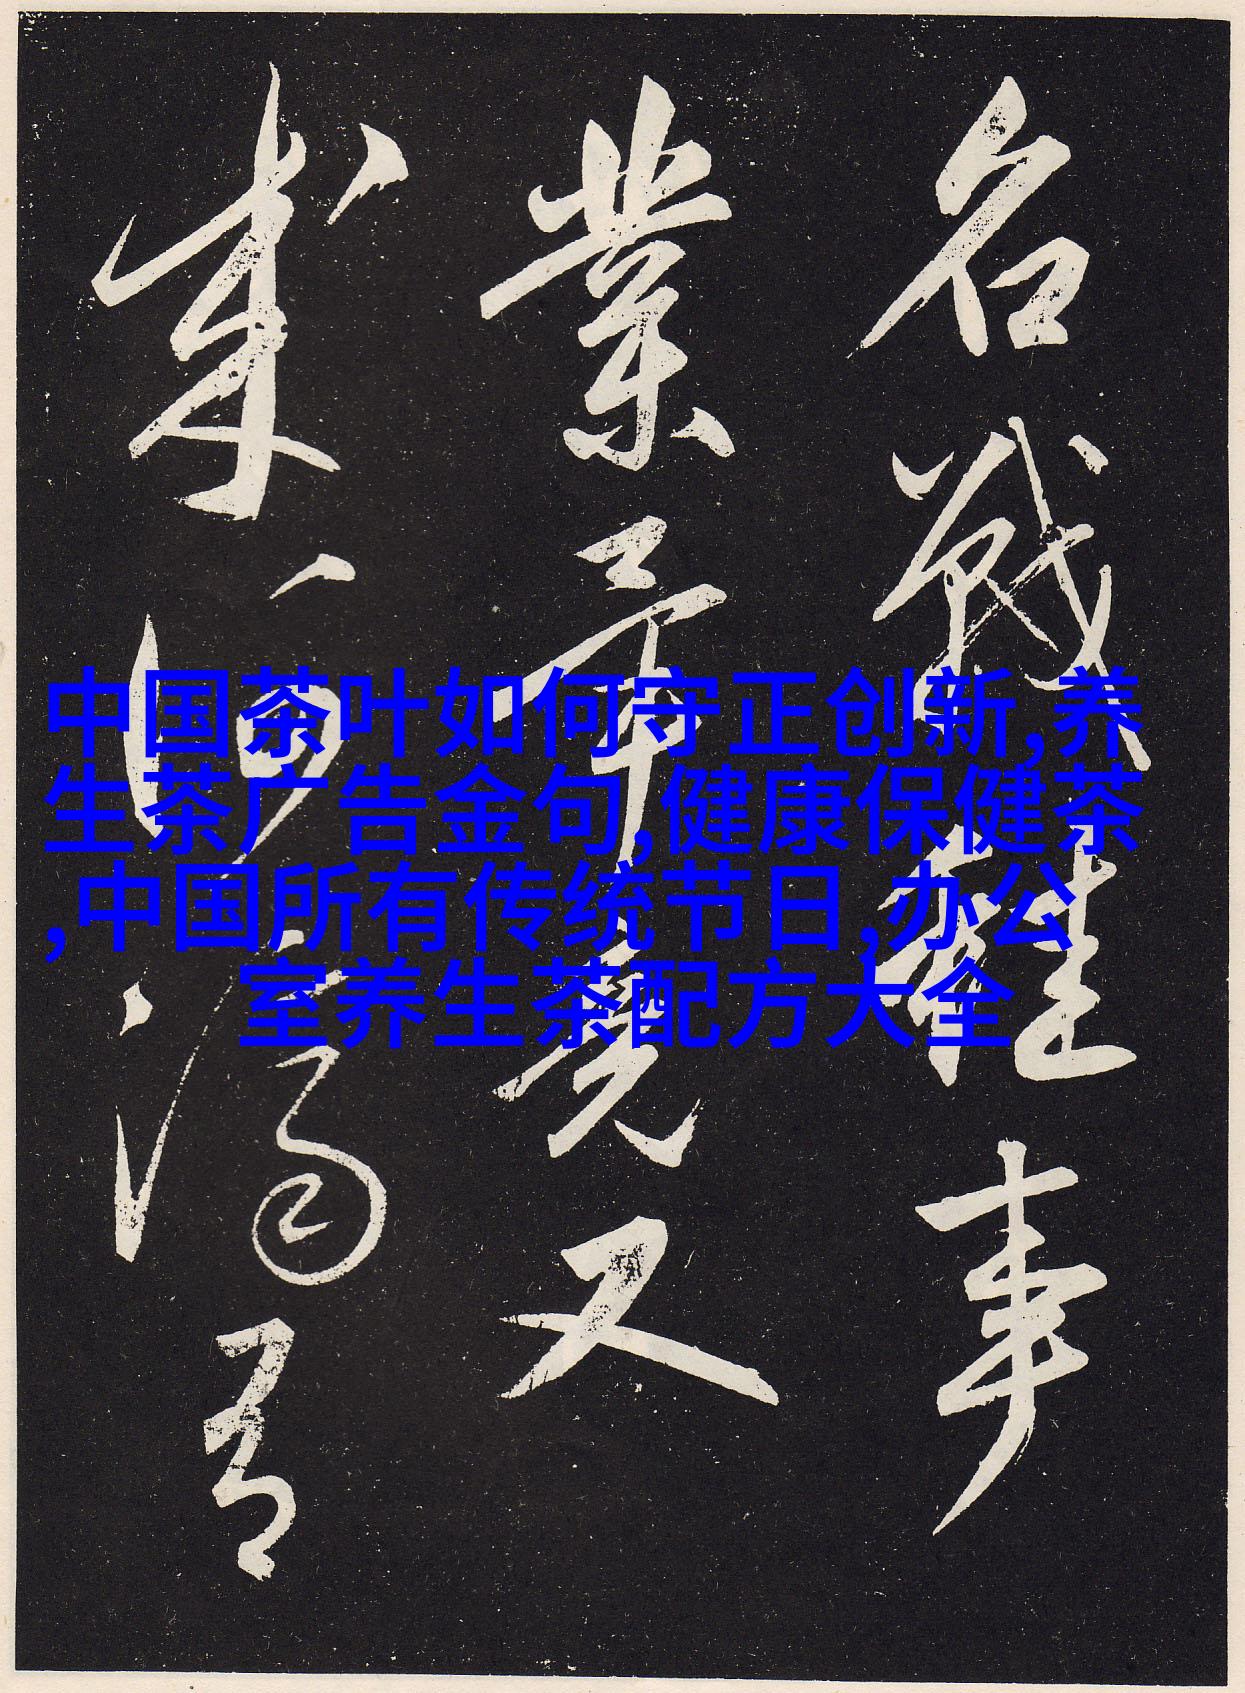 名戰雖事
業平竟又
來河陽書
中国茶叶如何守正创新,养
生茶广告金句,健康保健茶
,中国所有传统节日,办公
室养生茶配方大全